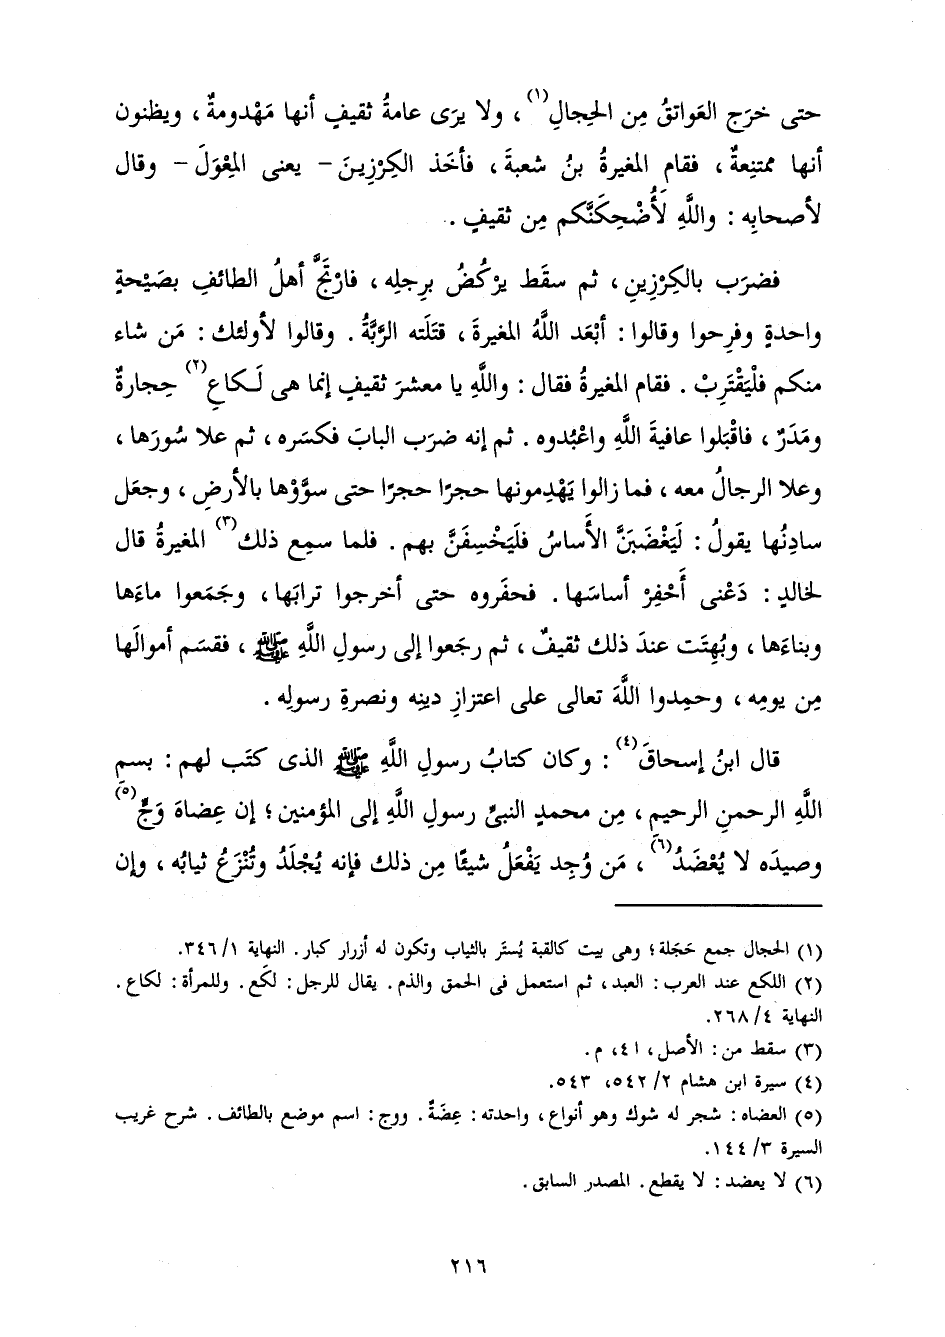 حتى خرَج العَواتقُ مِن الحِجالِ(١)، ولا يرَى عامةُ ثقيفٍ أنها مَهْدومةٌ، ويظنون
أنها ممتنِعةٌ، فقام المغيرةُ بنُ شعبةَ، فأخَذ الكِرْزِينَ - يعنى المِعْوَلَ - وقال
لأصحابِه: واللَّهِ لَأُضْحِكَنَّكم مِن ثقيفٍ.
فضرَب بالكِرْزِينِ، ثم سقَط يرْكُضُ برِجلِه، فارْتَجَّ أهلُ الطائفِ بصَيْحةٍ
واحدةٍ وفرِحوا وقالوا: أبْعَد اللَّهُ المغيرةَ، قتَلَته الرَّبَّةُ. وقالوا لأولئك: مَن شاء
منكم فلْيَقْتَرِبْ. فقام المغيرةُ فقال: واللَّهِ يا معشرَ ثقيفٍ إنما هى لَكاعِ(٢) حِجارةٌ
ومَدَرٌ، فاقْبَلوا عافيةَ اللَّهِ واعْبُدوه. ثم إنه ضرَب البابَ فكسَره، ثم علا سُورَها،
وعلا الرجالُ معه، فما زالوا يَهْدِمونها حجرًا حجرًا حتى سوَّوْها بالأرضِ، وجعَل
سادِنُها يقولُ: لَيَغْضَبَنَّ الأَساسُ فلَيَخْسِفَنَّ بهم. فلما سمِع ذلك(٣) المغيرةُ قال
لخالدٍ: دَعْنى أَحْفِرْ أساسَها. فحفَروه حتى أخرجوا ترابَها، وجَمَعوا ماءَها
وبناءَها، وبُهِتَت عندَ ذلك ثقيفٌ، ثم رجَعوا إلى رسولِ اللَّهِ ﷺ، فقسَم أموالَها
مِن يومِه، وحمِدوا اللَّهَ تعالى على اعتزازِ دينِه ونصرةِ رسولِه.
قال ابنُ إسحاقَ(٤): وكان كتابُ رسولِ اللَّهِ ﷺ الذى كتَب لهم: بسمِ
اللَّهِ الرحمنِ الرحيمِ، مِن محمدٍ النبىِّ رسولِ اللَّهِ إلى المؤمنين؛ إن عِضاهَ وَجٍّ(٥)
وصيدَه لا يُعْضَدُ(٦)، مَن وُجِد يَفْعَلُ شيئًا مِن ذلك فإنه يُجْلَدُ وتُنْزَعُ ثيابُه، وإن
(١) الحجال جمع حَجَلة؛ وهى بيت كالقبة يُستَر بالثياب وتكون له أزرار كبار. النهاية ١/ ٣٤٦.
(٢) اللكع عند العرب: العبد، ثم استعمل فى الحمق والذم. يقال للرجل: لكَع. وللمرأة: لكاع.
النهاية ٤/ ٢٦٨.
(٣) سقط من: الأصل، ا ٤، م.
(٤) سيرة ابن هشام ٢/ ٥٤٢، ٥٤٣.
(٥) العضاه: شجر له شوك وهو أنواع، واحدته: عِضَةٌ. ووج: اسم موضع بالطائف. شرح غريب
السيرة ٣/ ١٤٤.
(٦) لا يعضد: لا يقطع. المصدر السابق.
٢١٦